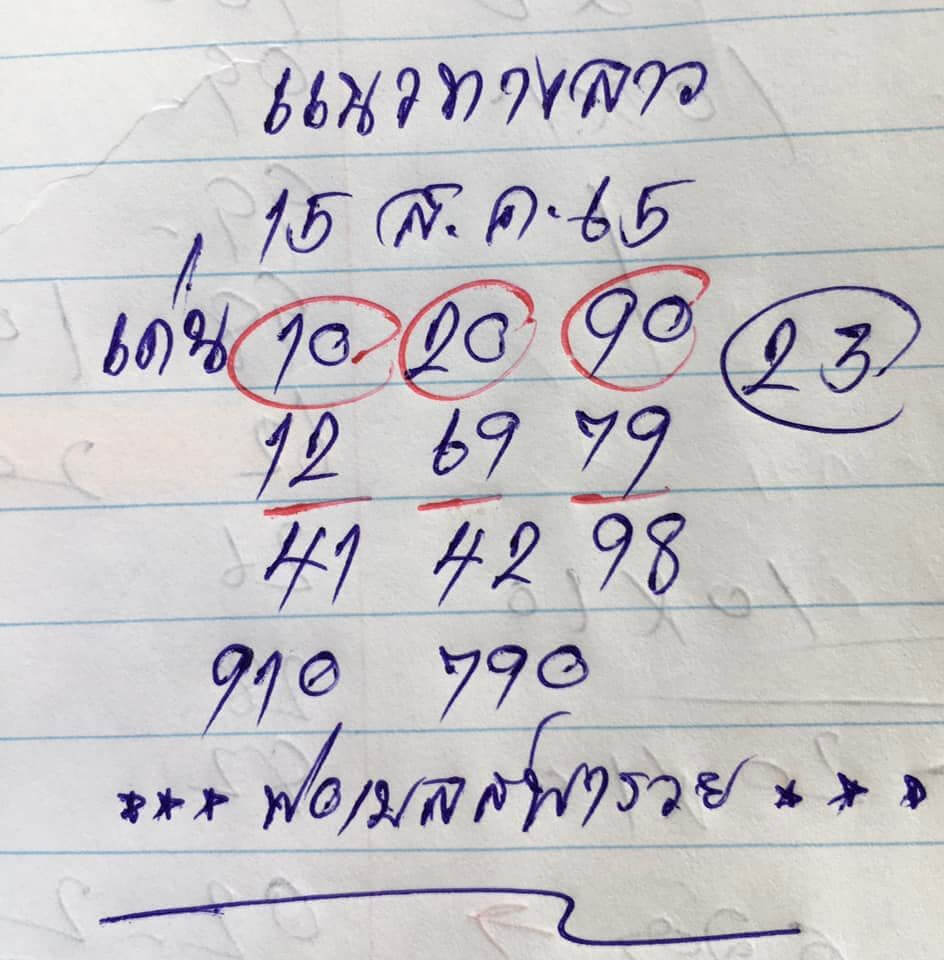 แนวทางลาว
15 ส.ค. 65
เด่น 10 20 90 23
12 69 79
41 42 98
910 790
*** พารวย ***